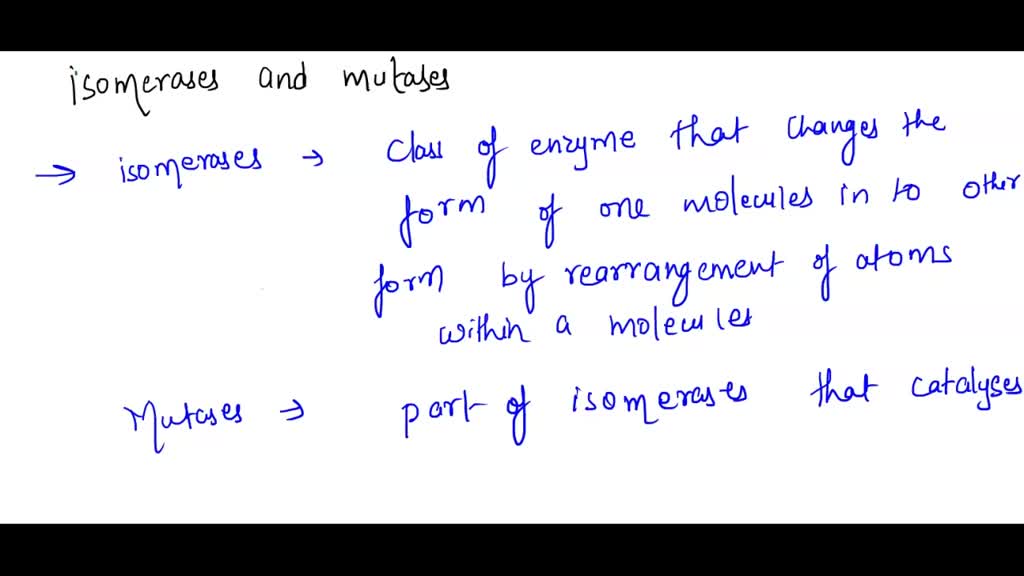 isomerases and mutases
→ isomerases → class of enzyme that changes the
form of one molecules in to other
form by rearrangement of atoms
within a molecules
Mutases → part of isomerases that catalyses